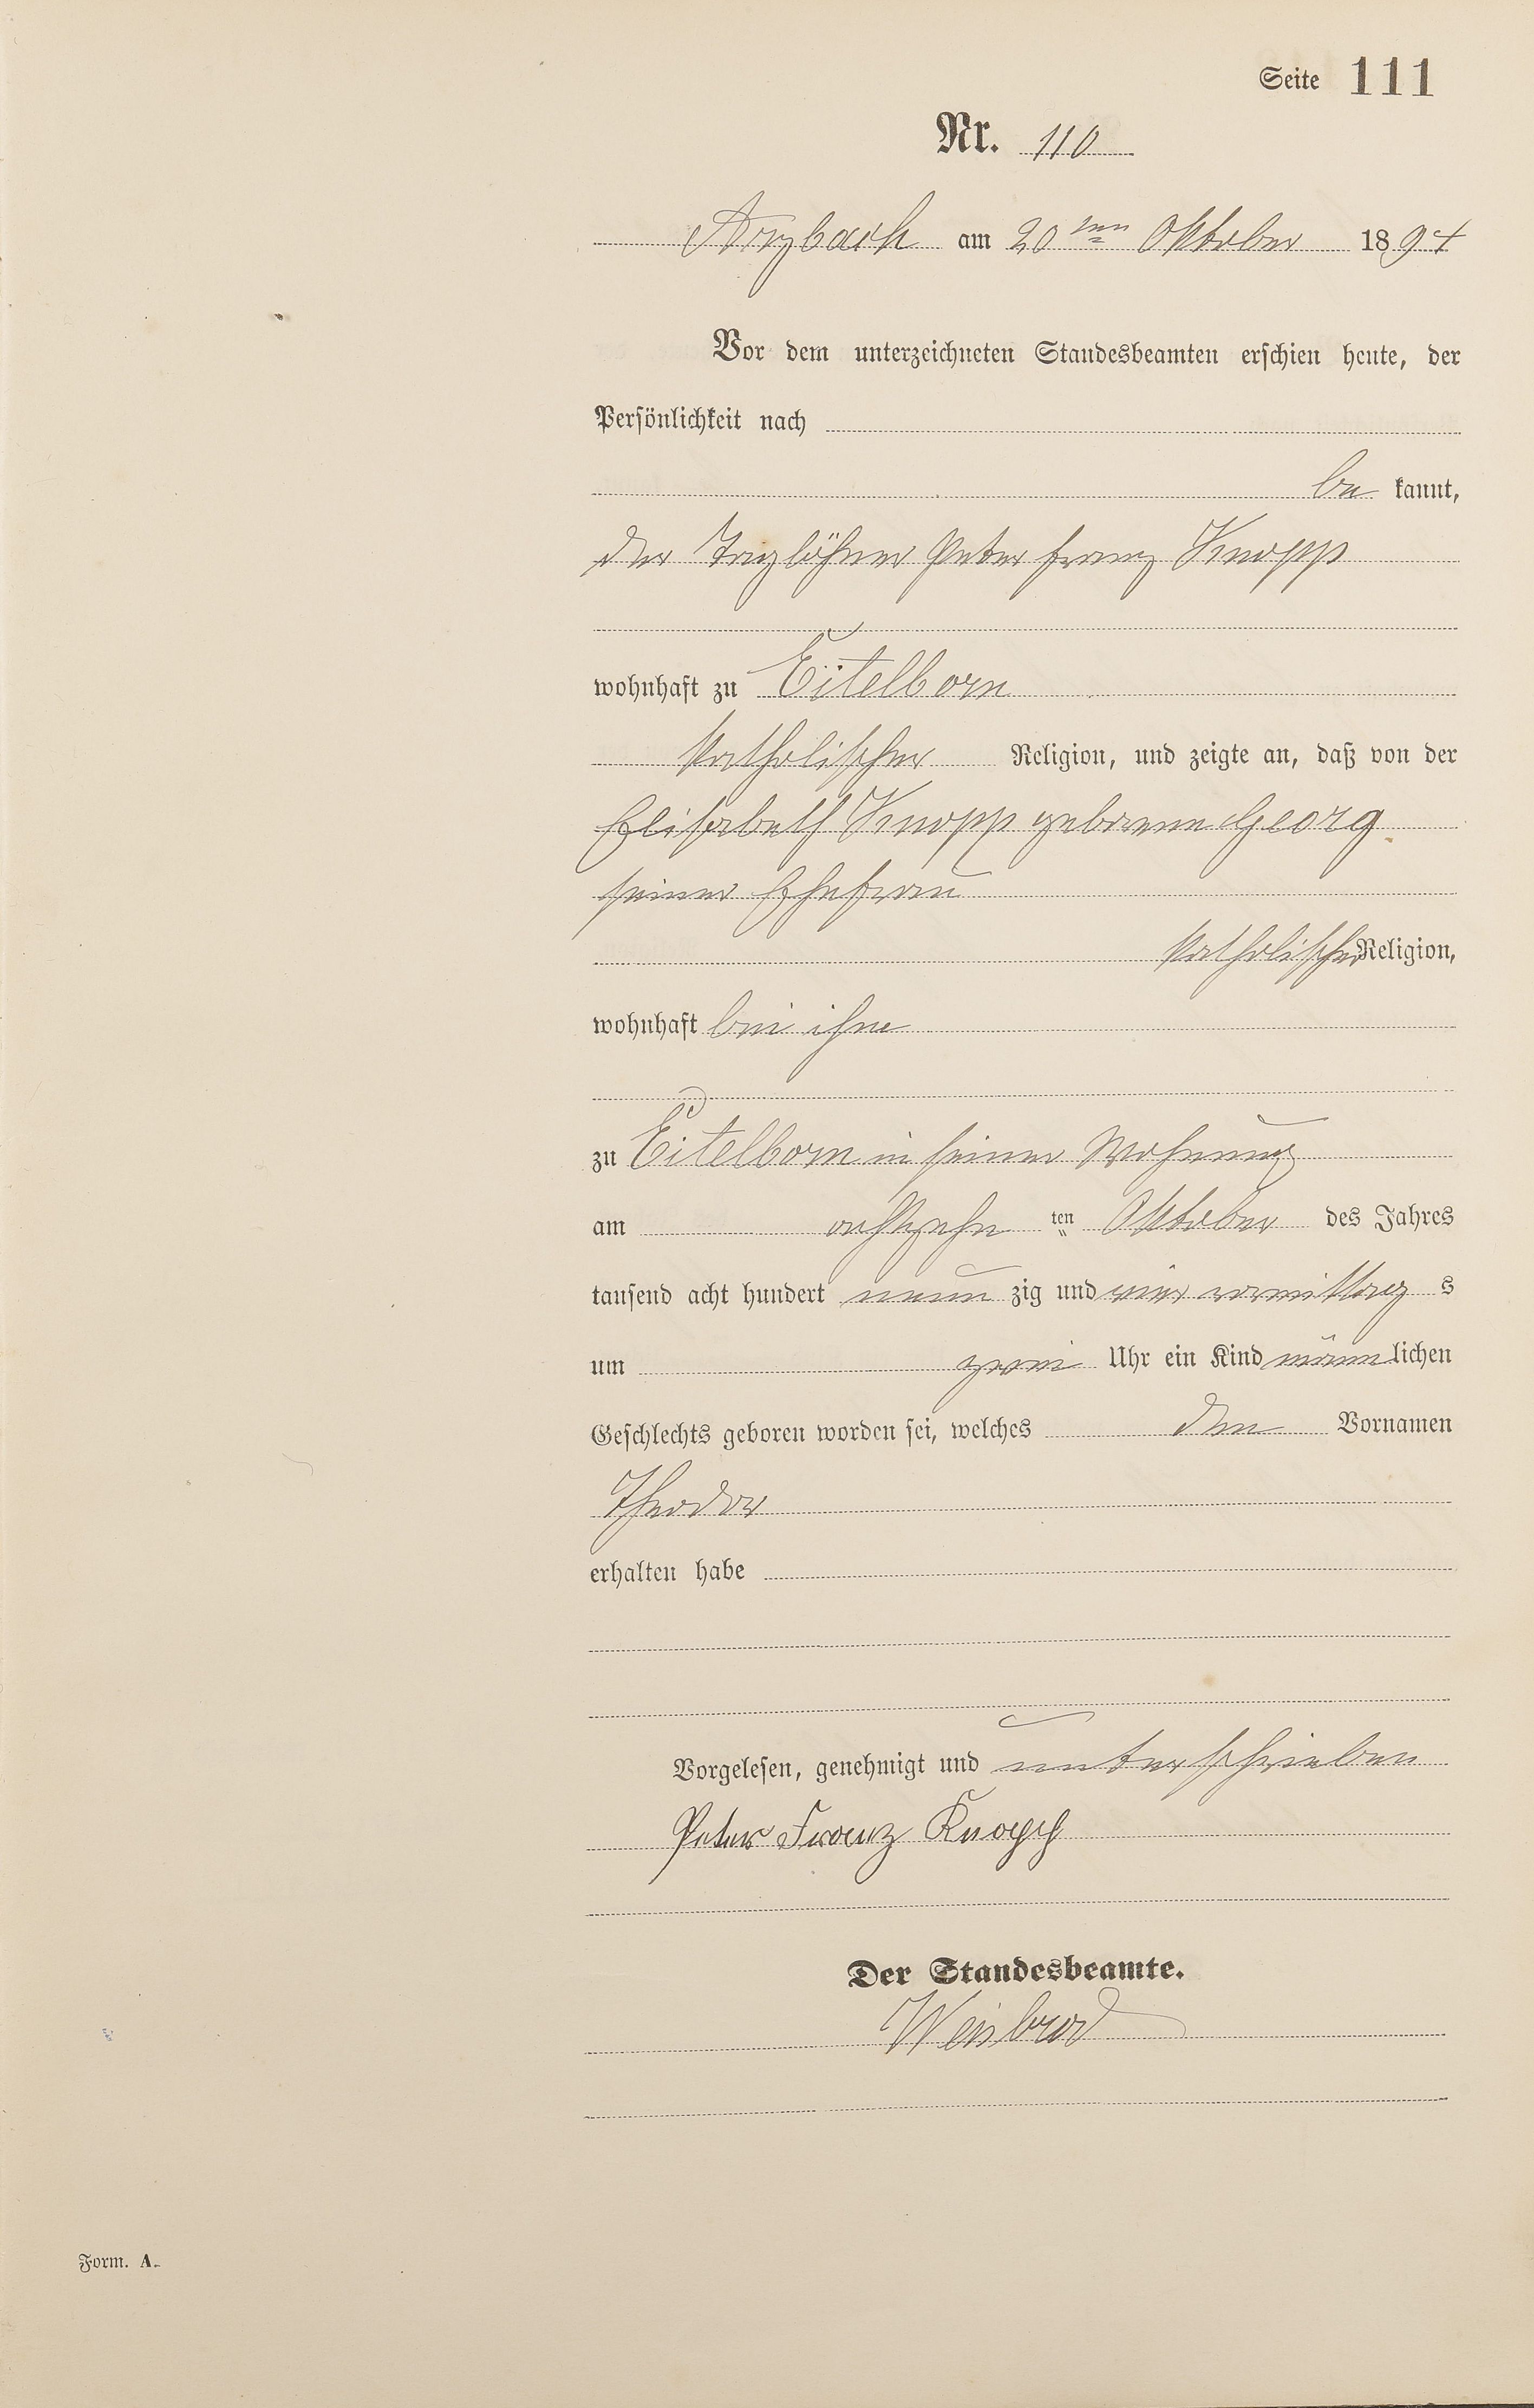 Seite 111
Nr. 110
Arzbach am 20ten Oktober 1894
Vor dem unterzeichneten Standesbeamten erschien heute, der
Persönlichkeit nach
be kannt,
der Taglöhner Peter Franz Knopp
wohnhaft zu Eitelborn
katholischer Religion, und zeigte an, daß von der
Elisabeth Knopp geborene Georg
seiner Ehefrau
katholischer Religion,
wohnhaft bei ihm
zu Eitelborn in seiner Wohnung
am achtzehn ten Oktober des Jahres
tausend acht hundert neun zig und vier vormittag s
um zwei Uhr ein Kind männ lichen
Geschlechts geboren worden sei, welches den Vornamen
Theodor
erhalten habe
Vorgelesen, genehmigt und unterschrieben
Peter Franz Knopp
Der Standesbeamte.
Weisbrod
Form. A.